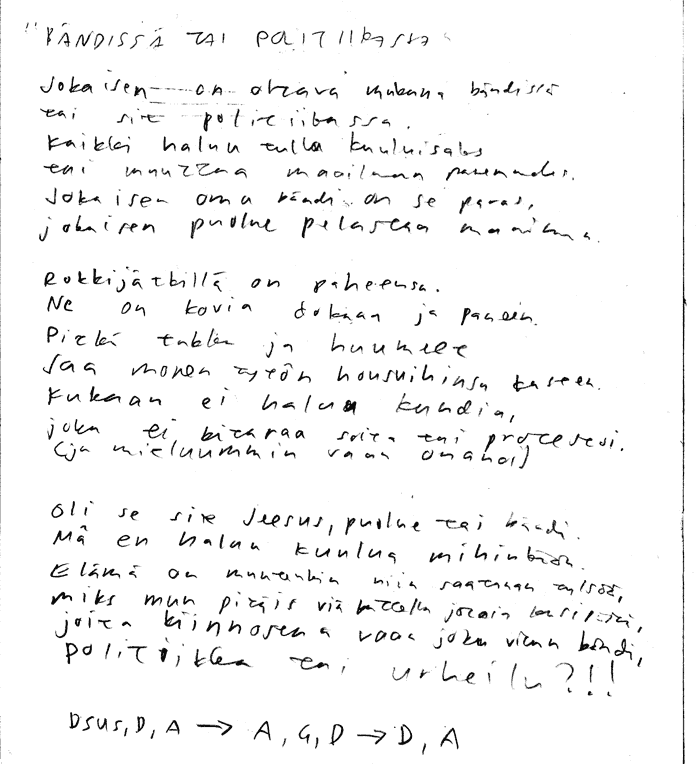 "BÄNDISSÄ TAI POLITIIKASSA"
Jokaisen on oltava mukana bändissä
tai sit politiikassa.
Kaikki haluu tulla kuuluisaks
tai muuttaa maailmaa paremmaks.
Jokaisen oma bändi on se paras,
jokaisen puolue pelastaa maailma.
Rokkijätkillä on paheensa.
Ne on kovia dokaan ja paneen.
Pitkä tukka ja huumeet
saa monen tytön housuihinsa
Kukaan ei haluu kundia,
joka ei kitaraa soita tai protestesi.
(ja mieluummin vaan
Oli se sit Jeesus, puolue tai bändi.
Mä en haluu kuulua mihinkään.
Elämä on muutenkin niin saatanan tylsää,
miks mun pitäis viä kattella jotain
joita kiinnostaa vaan joku vitun bändi,
politiikka tai urheilu?!!!
Dsus, D, A → A, G, D → D, A